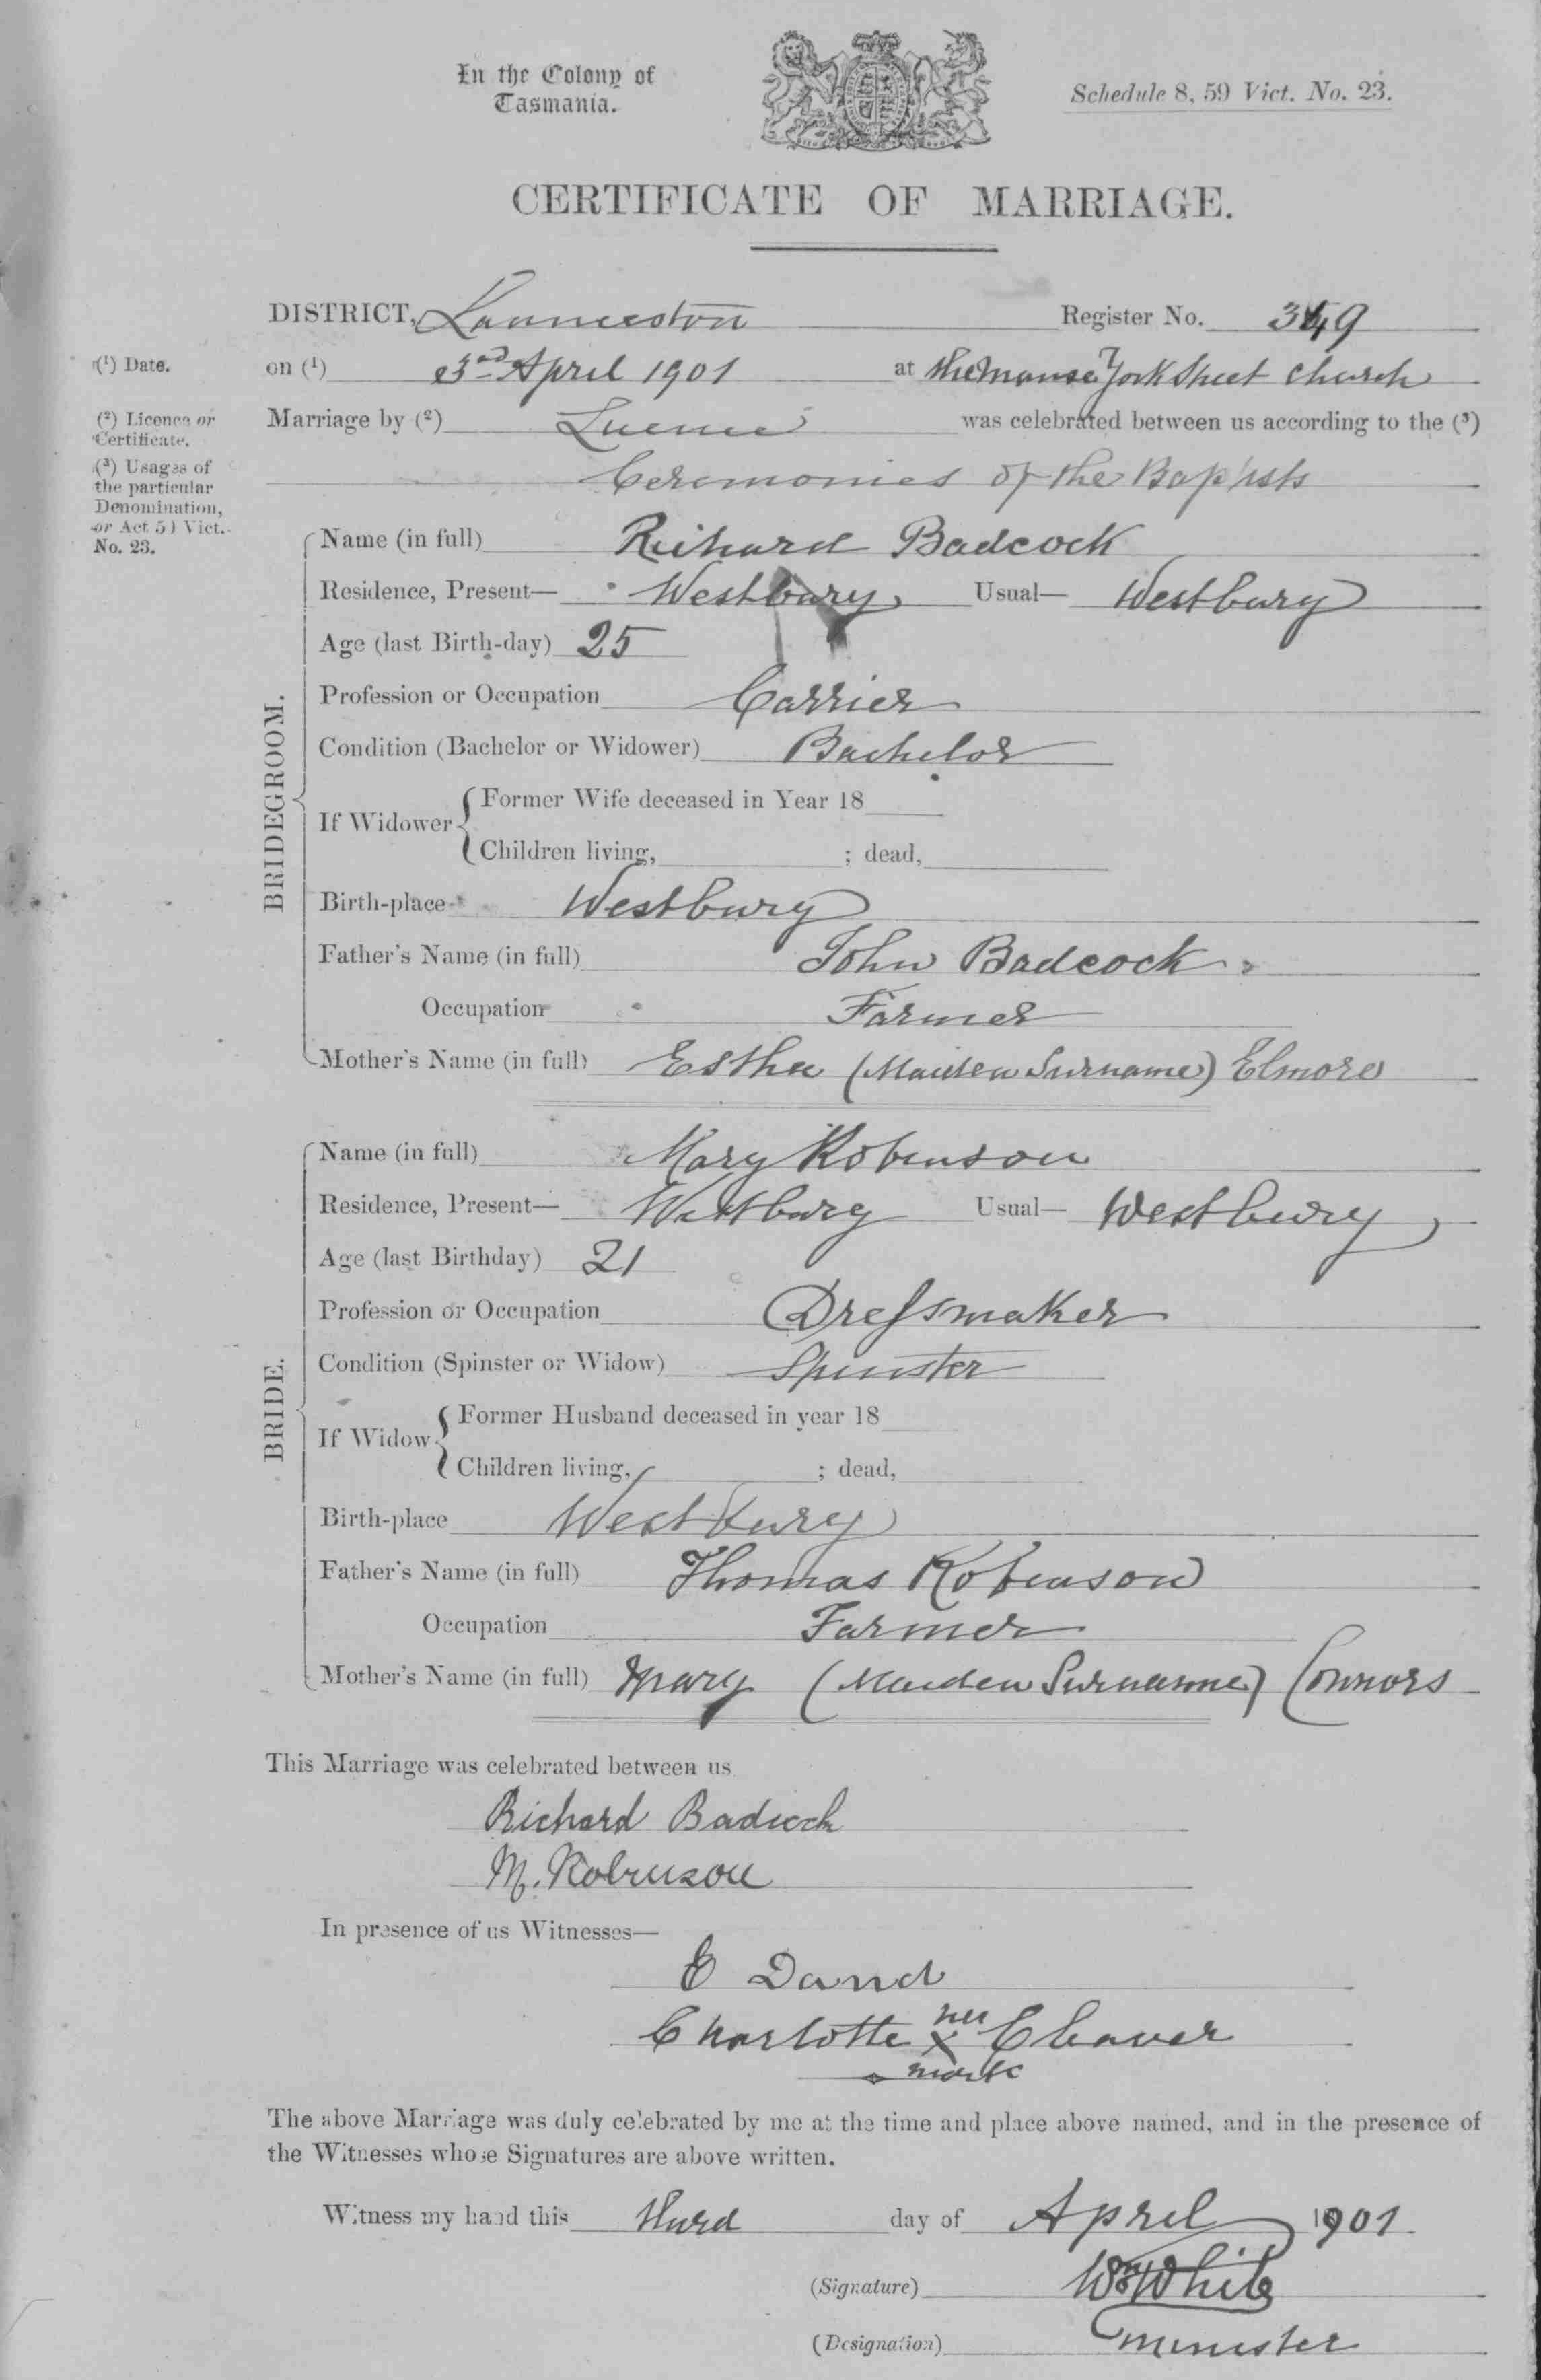 In the Colony of
Tasmania.
Schedule 8, 59 Vict. No. 23.
CERTIFICATE OF MARRIAGE.
DISTRICT, Launceston Register No. 349
(1) Date.
on (1) 3rd April 1901 at the Manse York Street Church
(2) Licence or
Certificate.
Marriage by (2) Licence was celebrated between us according to the (3)
(3) Usages of
the particular
Denomination,
or Act 59 Vict.
No. 23.
Ceremonies of the Baptists
BRIDEGROOM.
Name (in full) Richard Badcock
Residence, Present— Westbury Usual— Westbury
Age (last Birth-day) 25
Profession or Occupation Carrier
Condition (Bachelor or Widower) Bachelor
If Widower
Former Wife deceased in Year 18
Children living, ; dead,
Birth-place Westbury
Father's Name (in full) John Badcock
Occupation Farmer
Mother's Name (in full) Esther (Maiden Surname) Elmore
BRIDE.
Name (in full) Mary Robinson
Residence, Present— Westbury Usual— Westbury
Age (last Birthday) 21
Profession or Occupation Dressmaker
Condition (Spinster or Widow) Spinster
If Widow
Former Husband deceased in year 18
Children living, ; dead,
Birth-place Westbury
Father's Name (in full) Thomas Robinson
Occupation Farmer
Mother's Name (in full) Mary (Maiden Surname) Connors
This Marriage was celebrated between us
Richard Badcock
M. Robinson
In presence of us Witnesses—
E
Charlotte her x mark Cleaver
The above Marriage was duly celebrated by me at the time and place above named, and in the presence of
the Witnesses whose Signatures are above written.
Witness my hand this third day of April 1901.
(Signature) Wm White
(Designation) Minister